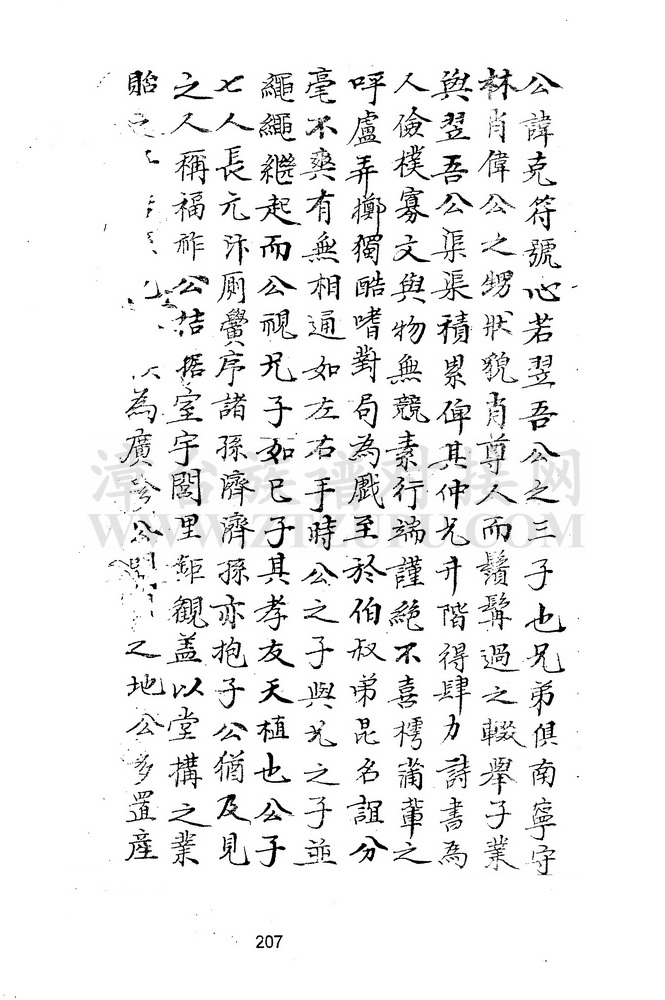 公諱克符號心若翌吾公之三子也兄弟俱南寧守
林肖偉公之甥狀貌肖尊人而鬚髯過之輟舉子業
與翌吾公渠渠積累俾其仲兄升階得肆力詩書為
人儉樸寡文與物無競素行端謹絕不喜樗蒲輩之
呼盧弄擲獨酷嗜對局為戲至於伯叔弟昆名誼分
毫不爽有無相通如左右手時公之子與兄之子並
繩繩繼起而公視兄子如已子其孝友天植也公子
七人長元汴廁黌序諸孫濟濟孫亦抱子公猶及見
之人稱福祚公拮据室宇閭里鉅觀盖以堂構之業
貽之 以為廣 公 之地公多置產
漳台族谱对接网
WWW.ZTZUPU.COM
207